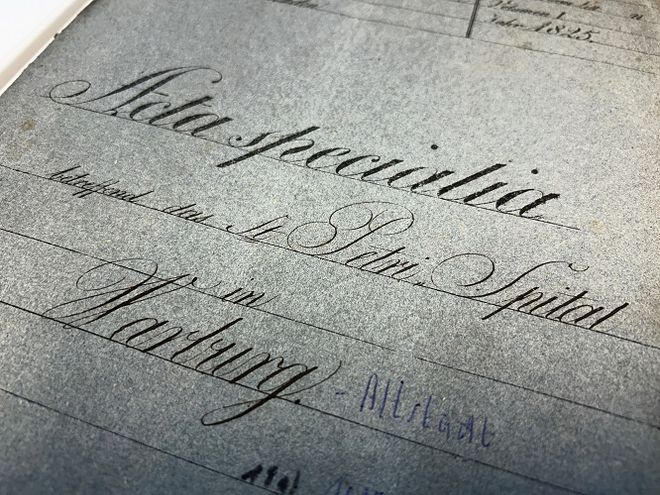 1825.
Acta specialia
betreffend das St. Petri Spital
in
Warburg. - Altstadt